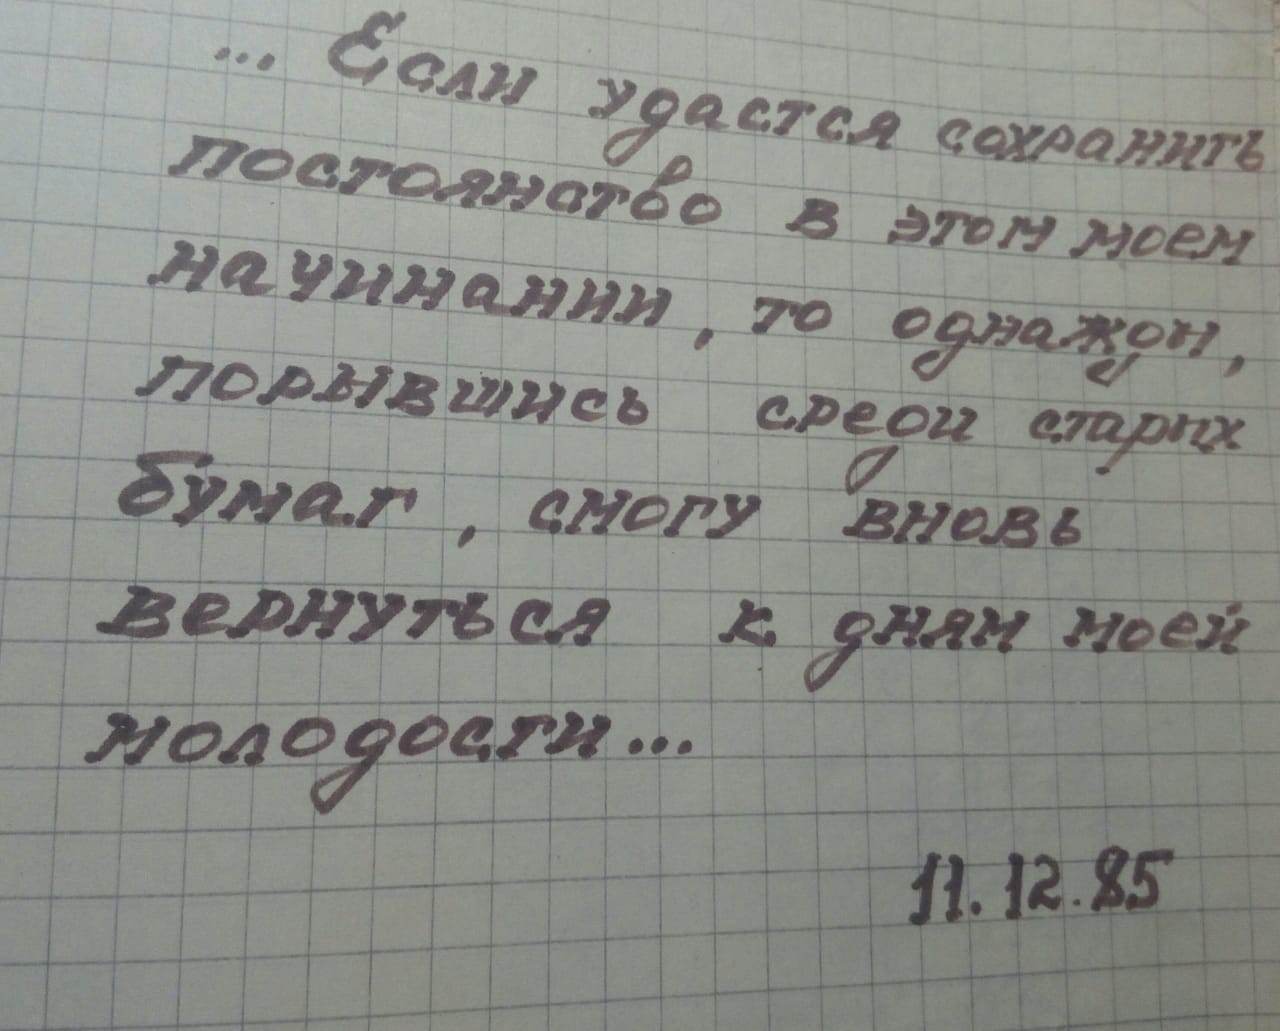 ... Если удастся сохранить
постоянство в этом моем
начинании, то однажды,
порывшись среди старых
бумаг, смогу вновь
вернуться к дням моей
молодости...
11.12.85